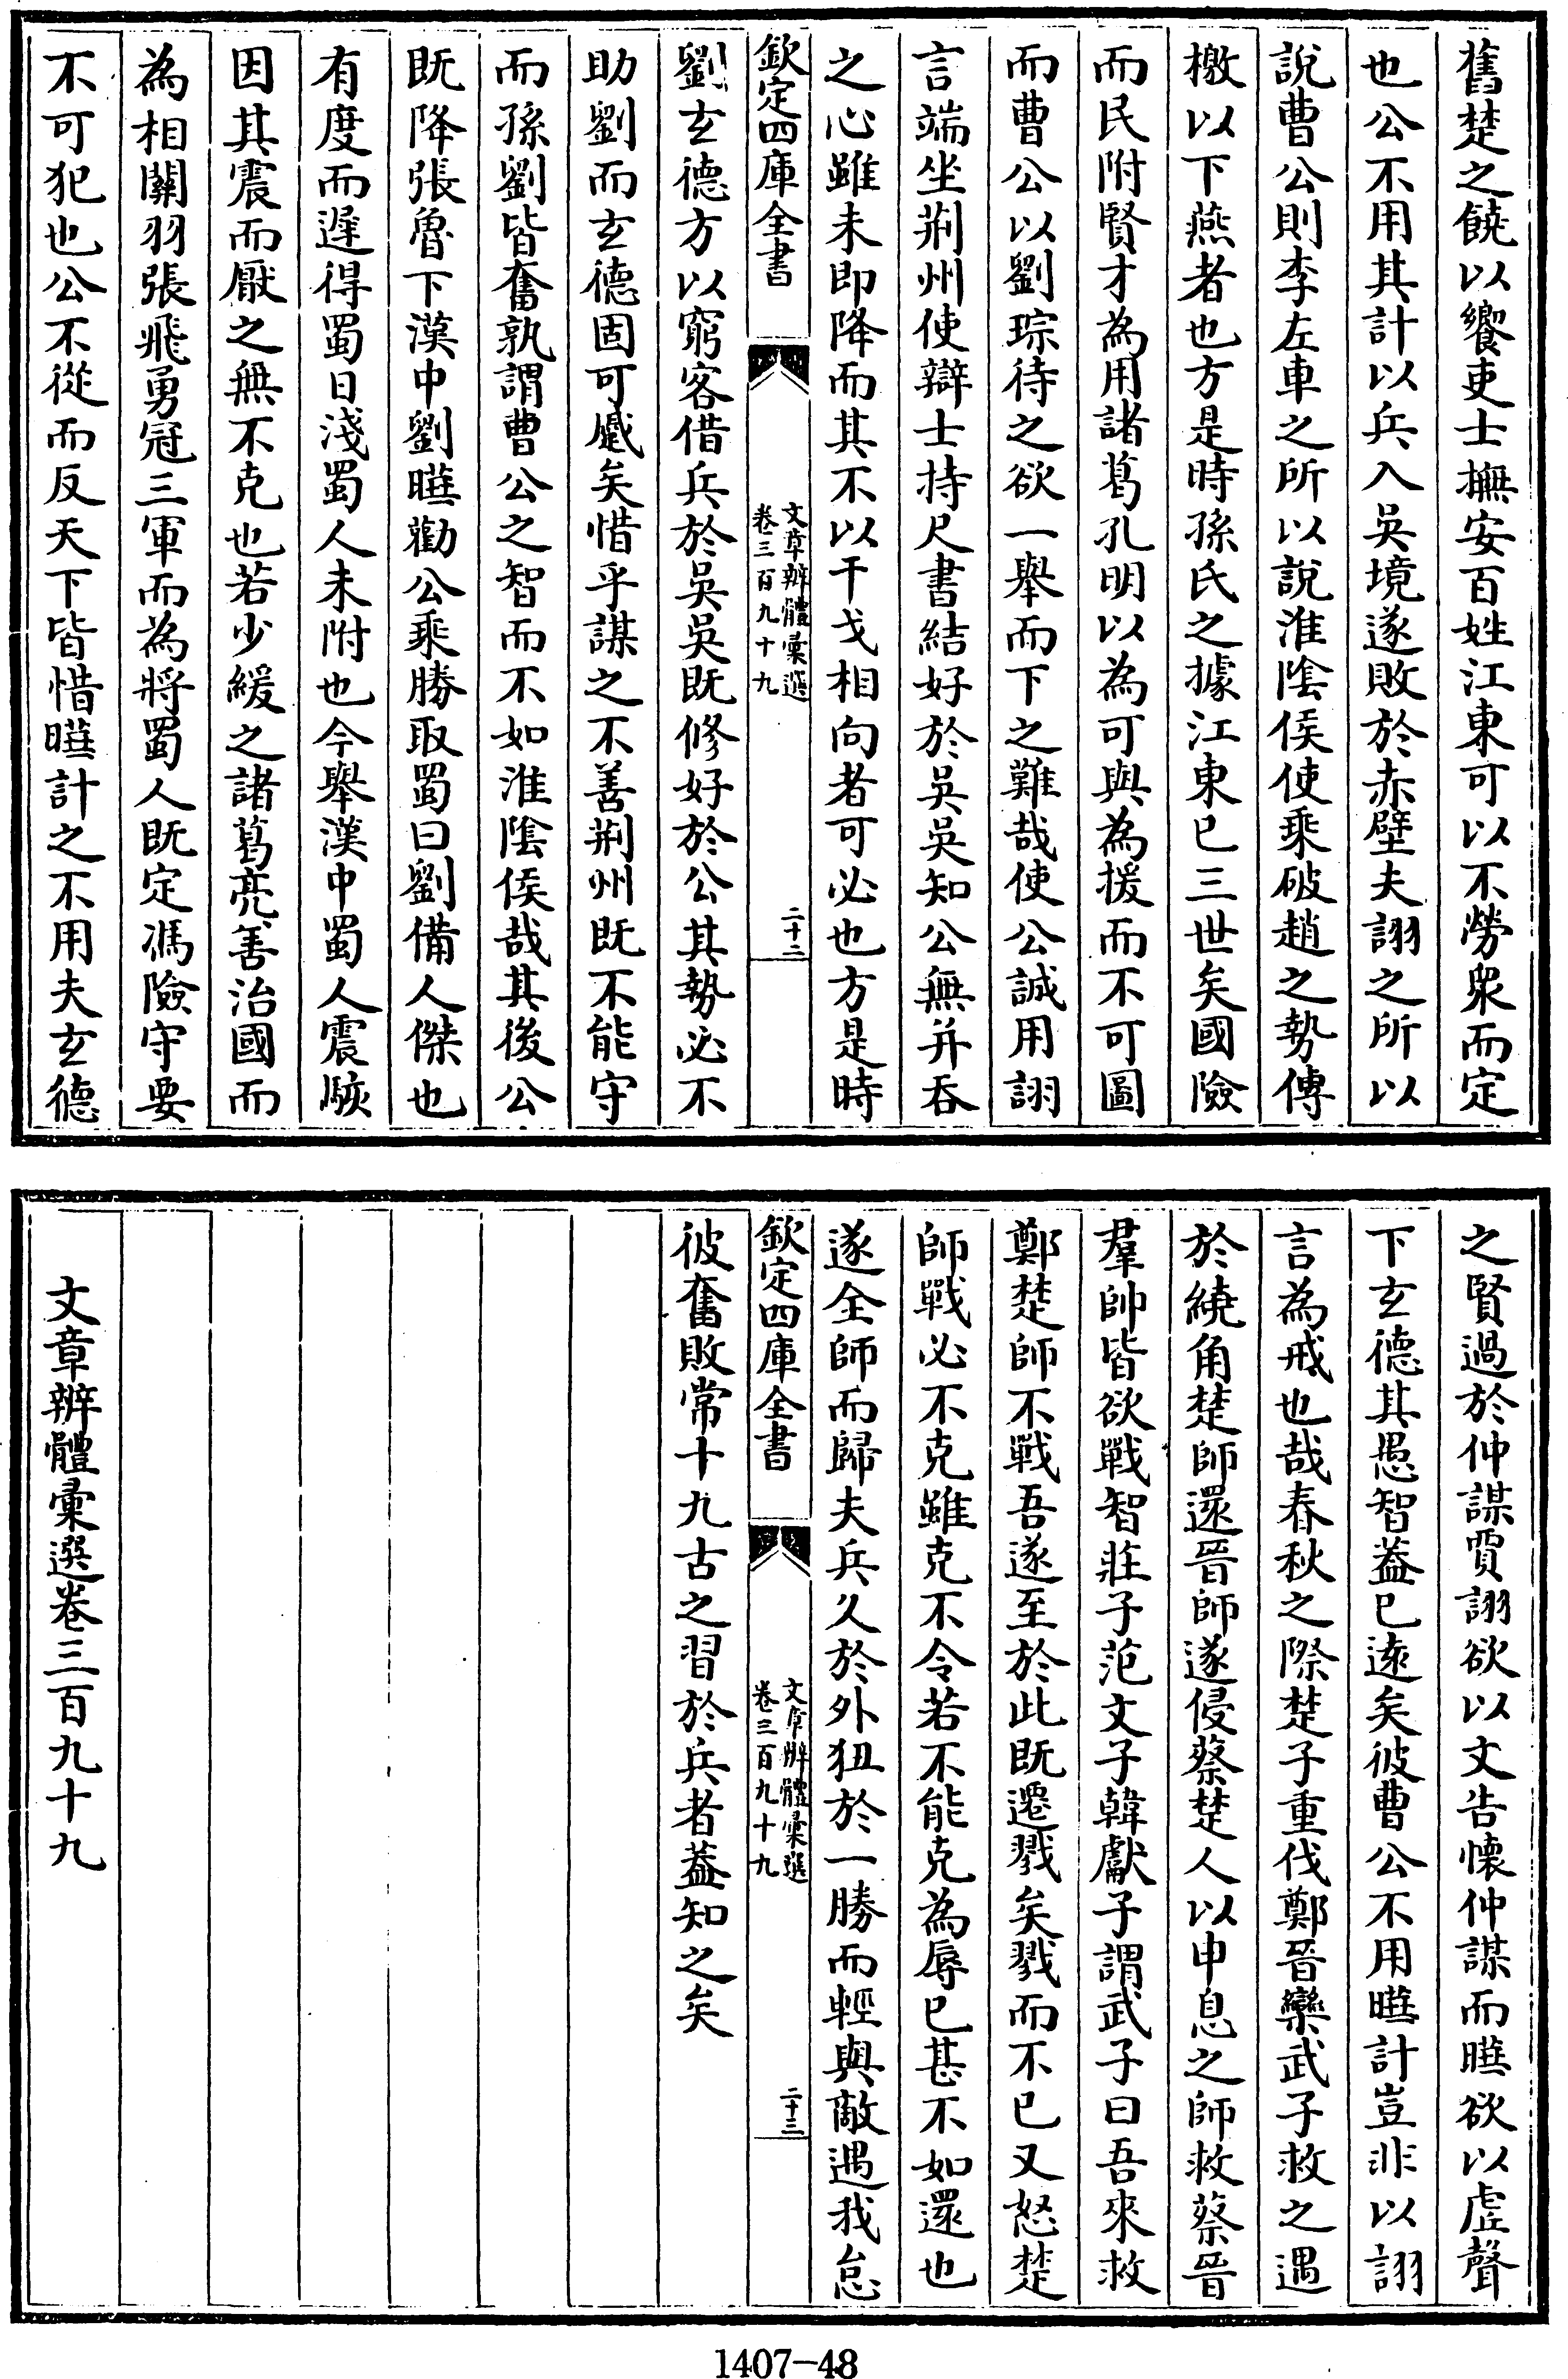 舊楚之饒以饗吏士撫安百姓江東可以不勞衆而定
也公不用其計以兵入吳境遂敗於赤壁夫詡之所以
說曹公則李左車之所以說淮陰侯使乘破趙之勢傳
檄以下燕者也方是時孫氏之據江東已三世矣國險
而民附賢才為用諸葛孔明以為可與為援而不可圖
而曹公以劉琮待之欲一舉而下之難哉使公誠用詡
言端坐荆州使辯士持尺書結好於吳吳知公無并吞
之心雖未即降而其不以干戈相向者可必也方是時
欽定四庫全書
文章辨體彙選
卷三百九十九
二十二
劉玄德方以窮客借兵於吳吳既修好於公其勢必不
助劉而玄德固可蹙矣惜乎謀之不善荆州既不能守
而孫劉皆奮孰謂曹公之智而不如淮陰侯哉其後公
既降張魯下漢中劉曄勸公乘勝取蜀曰劉備人傑也
有度而遲得蜀日淺蜀人未附也今舉漢中蜀人震駭
因其震而厭之無不克也若少緩之諸葛亮善治國而
為相關羽張飛勇冠三軍而為將蜀人既定馮險守要
不可犯也公不從而反天下皆惜曄計之不用夫玄德
之賢過於仲謀賈詡欲以文告懷仲謀而曄欲以虛聲
下玄德其愚智葢已遠矣彼曹公不用曄計豈非以詡
言為戒也哉春秋之際楚子重伐鄭晉欒武子救之遇
於繞角楚師還晉師遂侵蔡楚人以申息之師救蔡晉
羣帥皆欲戰智莊子范文子韓獻子謂武子曰吾來救
鄭楚師不戰吾遂至於此既遷戮矣戮而不已又怒楚
師戰必不克雖克不令若不能克為辱已甚不如還也
遂全師而歸夫兵久於外狃於一勝而輕與敵遇我怠
欽定四庫全書
文章辨體彙選
卷三百九十九
二十三
彼奮敗常十九古之習於兵者葢知之矣
文章辨體彙選卷三百九十九
1407-48